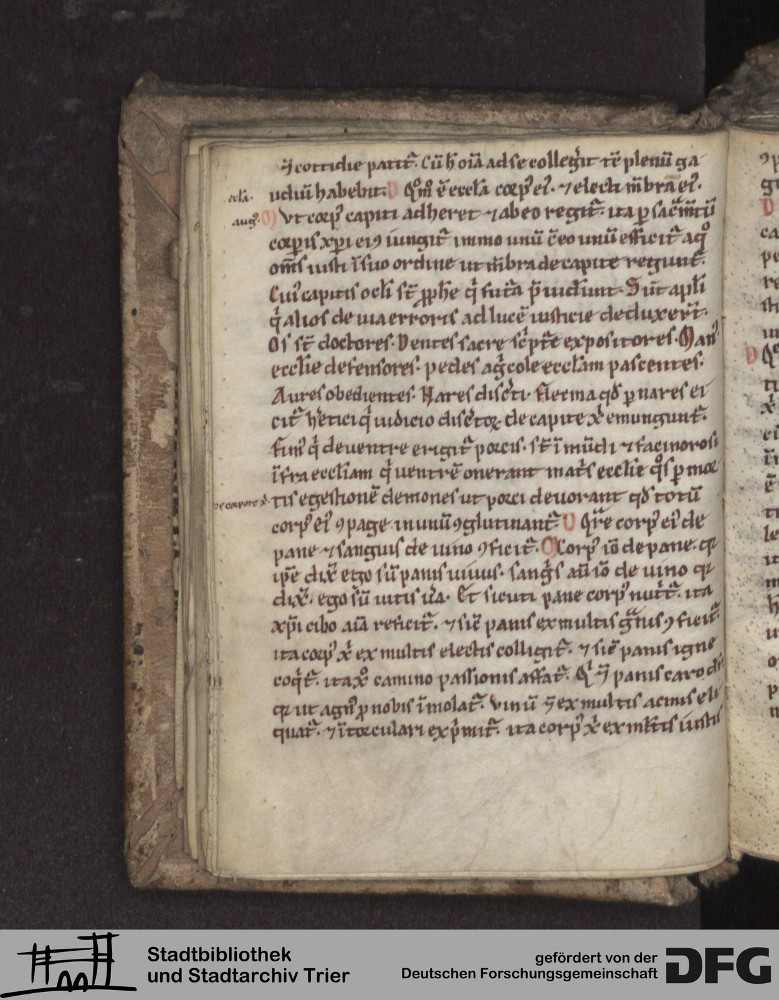 ⁊ cottidie patit᷑. Cū h̄ oīa ad se collegͥt tc̄ plenū ga
udiū habebit. D Qm̊ ē eccl̄a corpꝰ eiꝰ. ⁊ electi m̄bra eiꝰ.
eccl̄a.
aug᷑.
M Vt corpꝰ capiti adheret ⁊ ab eo regit᷑. ita ꝑ sac̄m̄tū
corꝑis xp̄i ei ꝯiungit᷑ immo unū c̄ eo unū efficit᷑ a qͦ
om̄s iusti ī suo ordine ut m̄bra de capite regunt᷑.
Cuiꝰ capitis ocl̄i st̄ ꝓphe q̇ fut̄a p̄uidert̄. Sūt apl̄i
q̇ alios de uia erroris ad lucē iusticie deduxert̄.
Os st̄ doctores. Dentes sacre sc̄pt̄e expositores. Manꝰ
ecclīe defensores. pedes ag̈cole eccl̄am pascentes.
Aures obedientes. Nares discͥti. flecma qd̄ ꝑ nares ei
cit᷑ h̄etici q̇ iudicio discͥtoꝝ de capite xͥ emungunt᷑.
fimꝰ q̇ de uentre erigit᷑ porcis. st̄ īmūdi ⁊ facinorosi
īfra eccliam q̇ uentrē onerant mat̄s ecclie qͦs ꝑ mor
de corpore xͥ.
tis egestionē demones ut porci deuorant qd̄ totū
corpꝰ eiꝰ ꝯpage in unū ꝯglutinant᷑. D Qͣre corpꝰ eiꝰ de
pane ⁊ sanguis de uino ꝯficit᷑. M Corpꝰ iō de pane. qꝛ
ip̄e dix̄ ego sū panis uiuus. sang̊s au̅ iō de uino qꝛ
dix̄. ego sū uitis u̅a. Et sicuti pane corpꝰ nut̊t᷑. ita
xp̄i cibo aīa reficit᷑. ⁊ sic̄ panis ex multis g̈nis ꝯficit᷑.
ita corpꝰ xͥ ex multis electis colligit᷑. ⁊ sic̄ panis igne
coqͥt᷑. ita xͦ camino passionis assat᷑. Qͥ ⁊ panis caro d̄r
qꝛ ut agnꝰ ꝓ nobis īmolat᷑. Vinū ⁊ ex multis acinis eli
quat᷑. ⁊ ī torculari exp̊mit᷑. ita corpꝰ xͥ ex mltis iustis
Stadtbibliothek
und Stadtarchiv Trier
gefördert von der
Deutschen Forschungsgemeinschaft
DFG